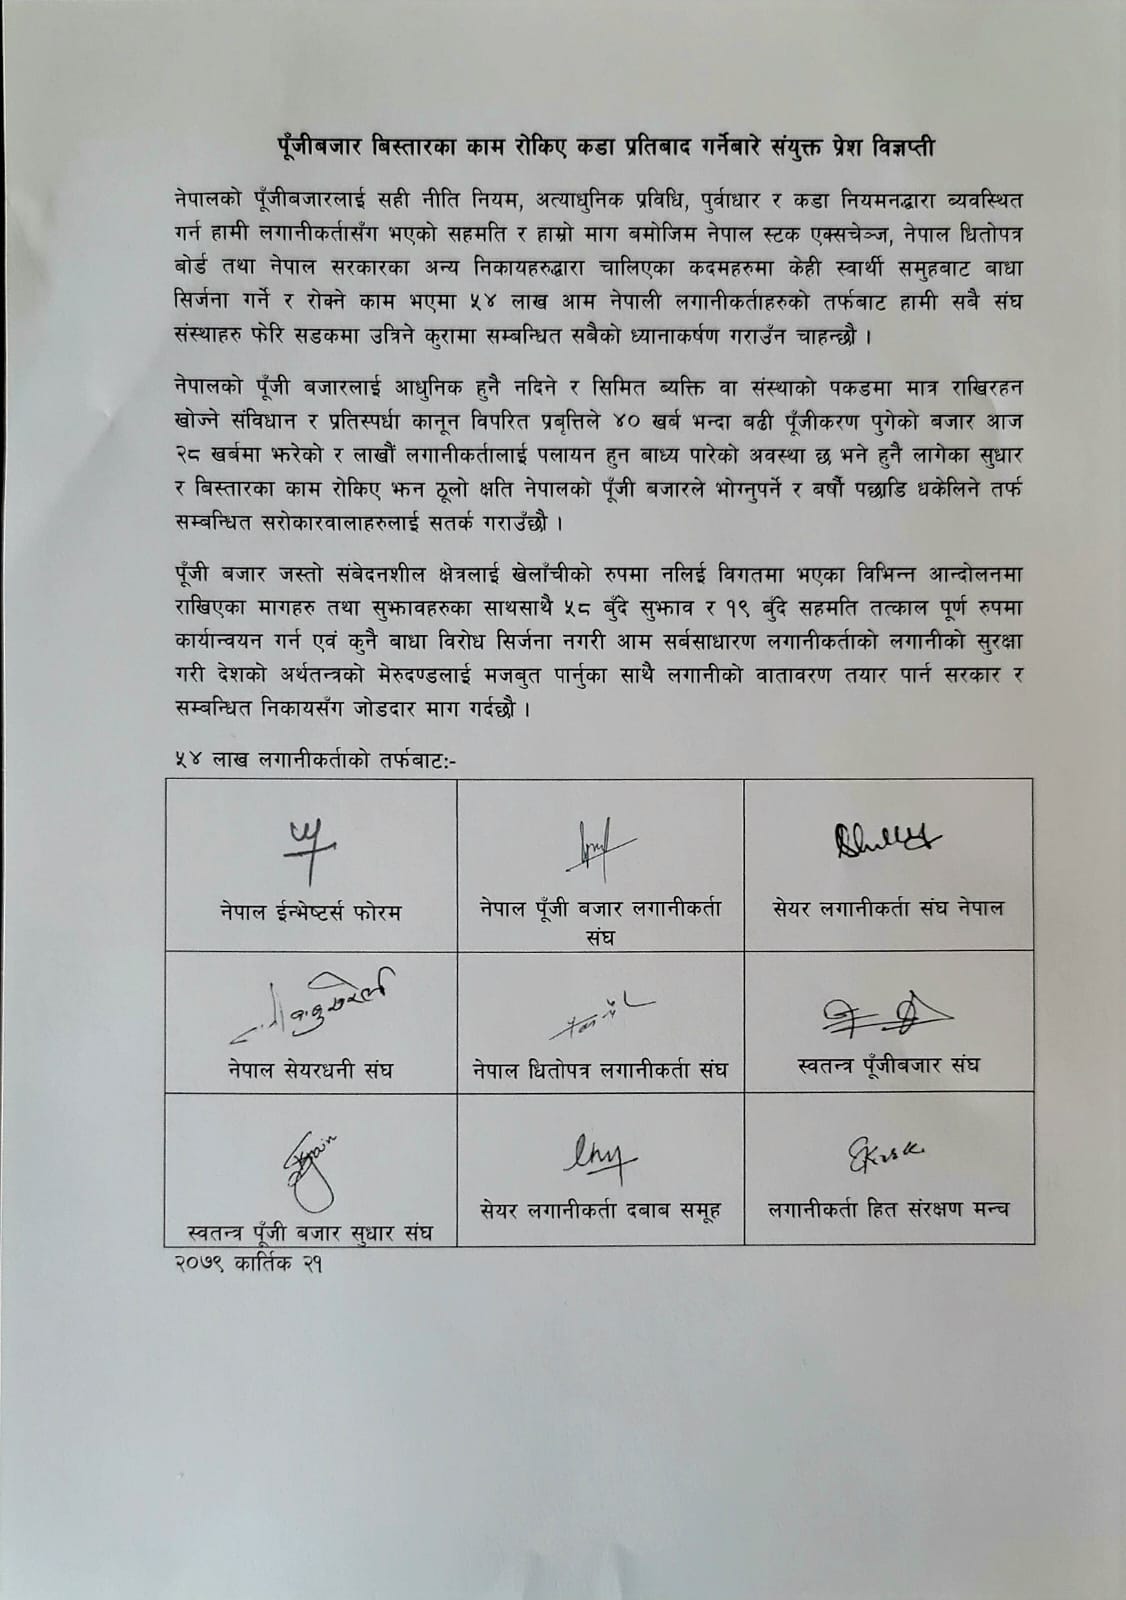 पूँजीबजार बिस्तारका काम रोकिए कडा प्रतिबाद गर्नेबारे संयुक्त प्रेश विज्ञप्ती
नेपालको पूँजीबजारलाई सही नीति नियम, अत्याधुनिक प्रविधि, पुर्वाधार र कडा नियमनद्धारा ब्यवस्थित
गर्न हामी लगानीकर्तासँग भएको सहमति र हाम्रो माग बमोजिम नेपाल स्टक एक्सचेञ्ज, नेपाल धितोपत्र
बोर्ड तथा नेपाल सरकारका अन्य निकायहरुद्धारा चालिएका कदमहरुमा केही स्वार्थी समुहबाट बाधा
सिर्जना गर्ने र रोक्ने काम भएमा ५४ लाख आम नेपाली लगानीकर्ताहरुको तर्फबाट हामी सबै संघ
संस्थाहरु फेरि सडकमा उत्रिने कुरामा सम्बन्धित सबैको ध्यानाकर्षण गराउँन चाहन्छौ ।
नेपालको पूँजी बजारलाई आधुनिक हुनै नदिने र सिमित ब्यक्ति वा संस्थाको पकडमा मात्र राखिरहन
खोज्ने संविधान र प्रतिस्पर्धा कानून विपरित प्रबृत्तिले ४० खर्ब भन्दा बढी पूँजीकरण पुगेको बजार आज
२८ खर्बमा झरेको र लाखौं लगानीकर्तालाई पलायन हुन बाध्य पारेको अवस्था छ भने हुनै लागेका सुधार
र बिस्तारका काम रोकिए झन ठूलो क्षति नेपालको पूँजी बजारले भोग्नुपर्ने र बर्षौं पछाडि धकेलिने तर्फ
सम्बन्धित सरोकारवालाहरुलाई सतर्क गराउँछौ ।
पूँजी बजार जस्तो संबेदनशील क्षेत्रलाई खेलाँचीको रुपमा नलिई विगतमा भएका विभिन्न आन्दोलनमा
राखिएका मागहरु तथा सुझावहरुका साथसाथै ५८ बुँदे सुझाव र १९ बुँदे सहमति तत्काल पूर्ण रुपमा
कार्यान्वयन गर्न एवं कुनै बाधा विरोध सिर्जना नगरी आम सर्बसाधारण लगानीकर्ताको लगानीको सुरक्षा
गरी देशको अर्थतन्त्रको मेरुदण्डलाई मजबुत पार्नुका साथै लगानीको वातावरण तयार पार्न सरकार र
सम्बन्धित निकायसँग जोडदार माग गर्दछौ ।
५४ लाख लगानीकर्ताको तर्फबाटः-
नेपाल ईन्भेष्टर्स फोरम
नेपाल पूँजी बजार लगानीकर्ता
संघ
सेयर लगानीकर्ता संघ नेपाल
नेपाल सेयरधनी संघ
नेपाल धितोपत्र लगानीकर्ता संघ
स्वतन्त्र पूँजीबजार संघ
स्वतन्त्र पूँजी बजार सुधार संघ
सेयर लगानीकर्ता दबाब समूह
लगानीकर्ता हित संरक्षण मन्च
२०७९ कार्तिक २१